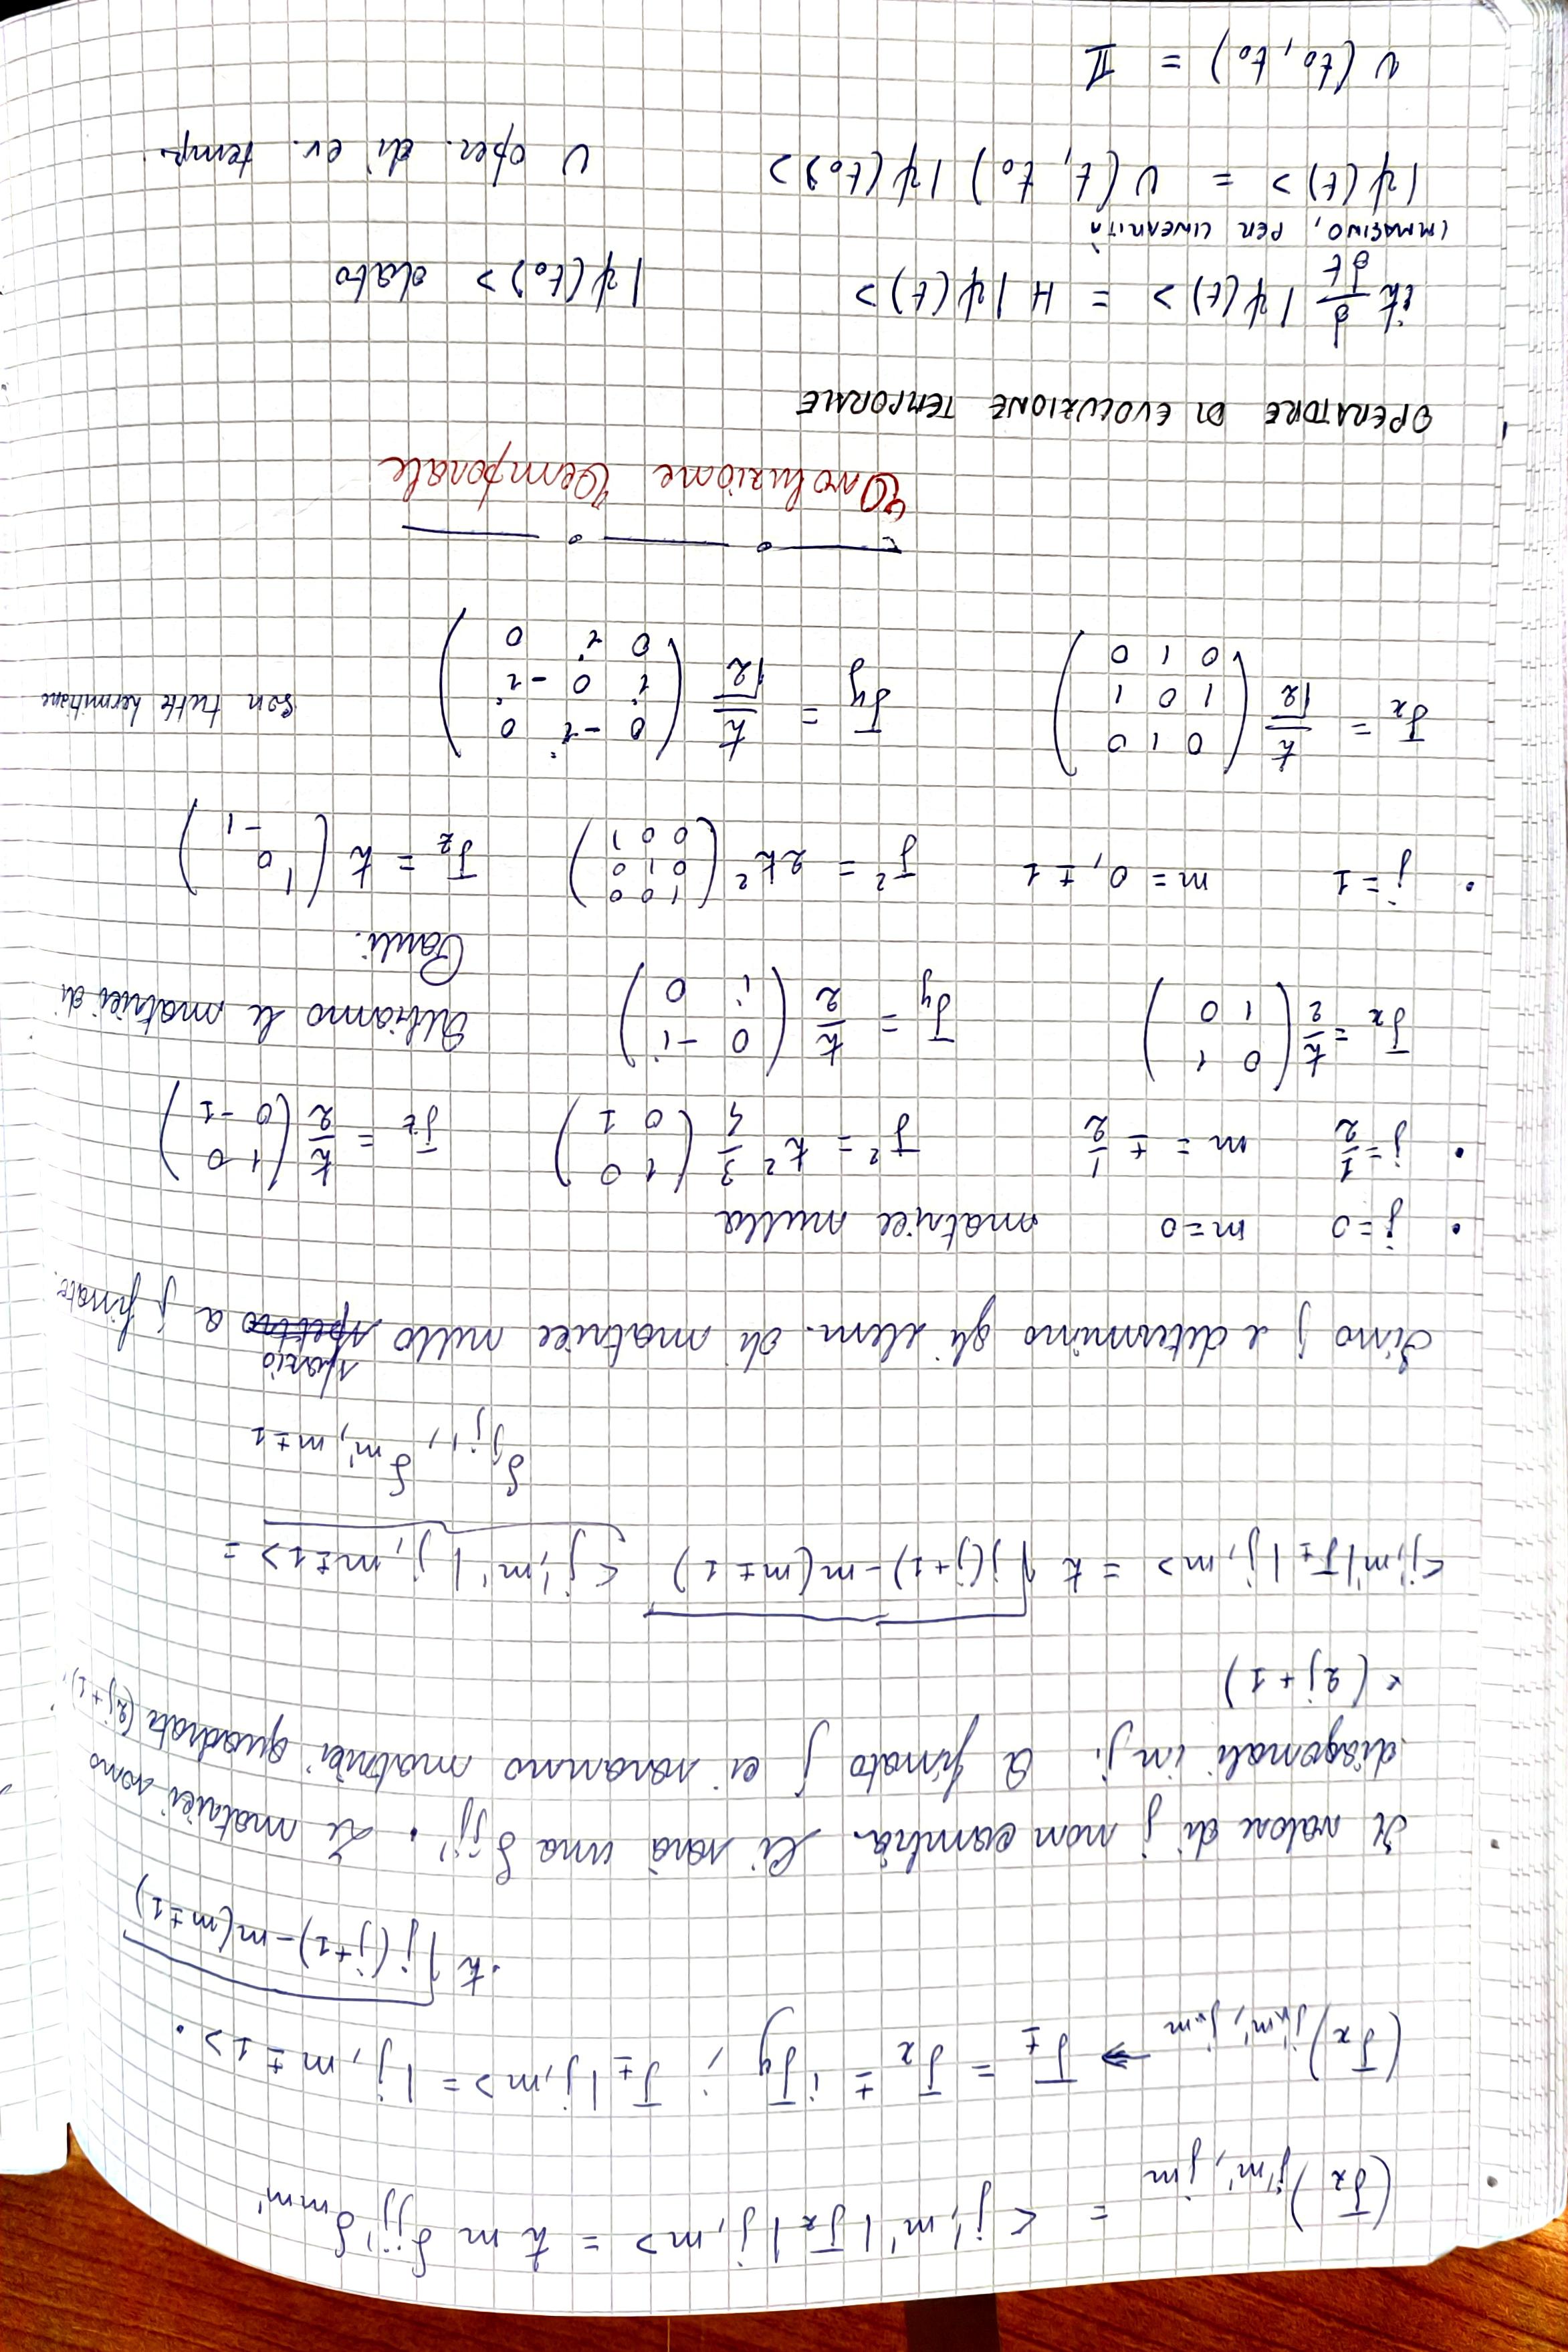 (J_z)_{j'm',jm} = <j',m'|J_z|j,m> = ħ m δ_{jj'} δ_{mm'}
(J_x)_{j',m',j,m} → J_± = J_x ± i J_y ; J_±|j,m> = |j, m ± 1> ·
· ħ √(j(j+1) - m(m±1))
Il valore di j non cambia. Ci sarà una δ_{jj'}. Le matrici sono
diagonali in j. A fissato j ci saranno matrici quadrate (2j+1)
× (2j+1)
<j',m'|J_±|j,m> = ħ √(j(j+1) - m(m±1)) <j',m'|j, m±1> =
δ_{jj'}, δ_{m', m±1}
spazio
Fisso j e determino gli elem. di matrice nello a j fissato.
• j=0 m=0 matrice nulla
• j=1/2 m = ± 1/2 J² = ħ² 3/4 (1 0 / 0 1) J_z = ħ/2 (1 0 / 0 -1)
J_x = ħ/2 (0 1 / 1 0) J_y = ħ/2 (0 -i / i 0) Abbiamo le matrici di
Pauli.
• j=1 m = 0, ±1 J² = 2ħ² (1 0 0 / 0 1 0 / 0 0 1) J_z = ħ (1 / 0 / -1)
J_x = ħ/√2 (0 1 0 / 1 0 1 / 0 1 0) J_y = ħ/√2 (0 -i 0 / i 0 -i / 0 i 0) son tutte hermitiane
Evoluzione Temporale
OPERATORE DI EVOLUZIONE TEMPORALE
iħ ∂/∂t |ψ(t)> = H |ψ(t)> |ψ(t₀)> dato
IMMAGINO, PER LINEARITÀ
|ψ(t)> = U(t, t₀) |ψ(t₀)> U oper. di ev. temp.
U(t₀, t₀) = 𝕀